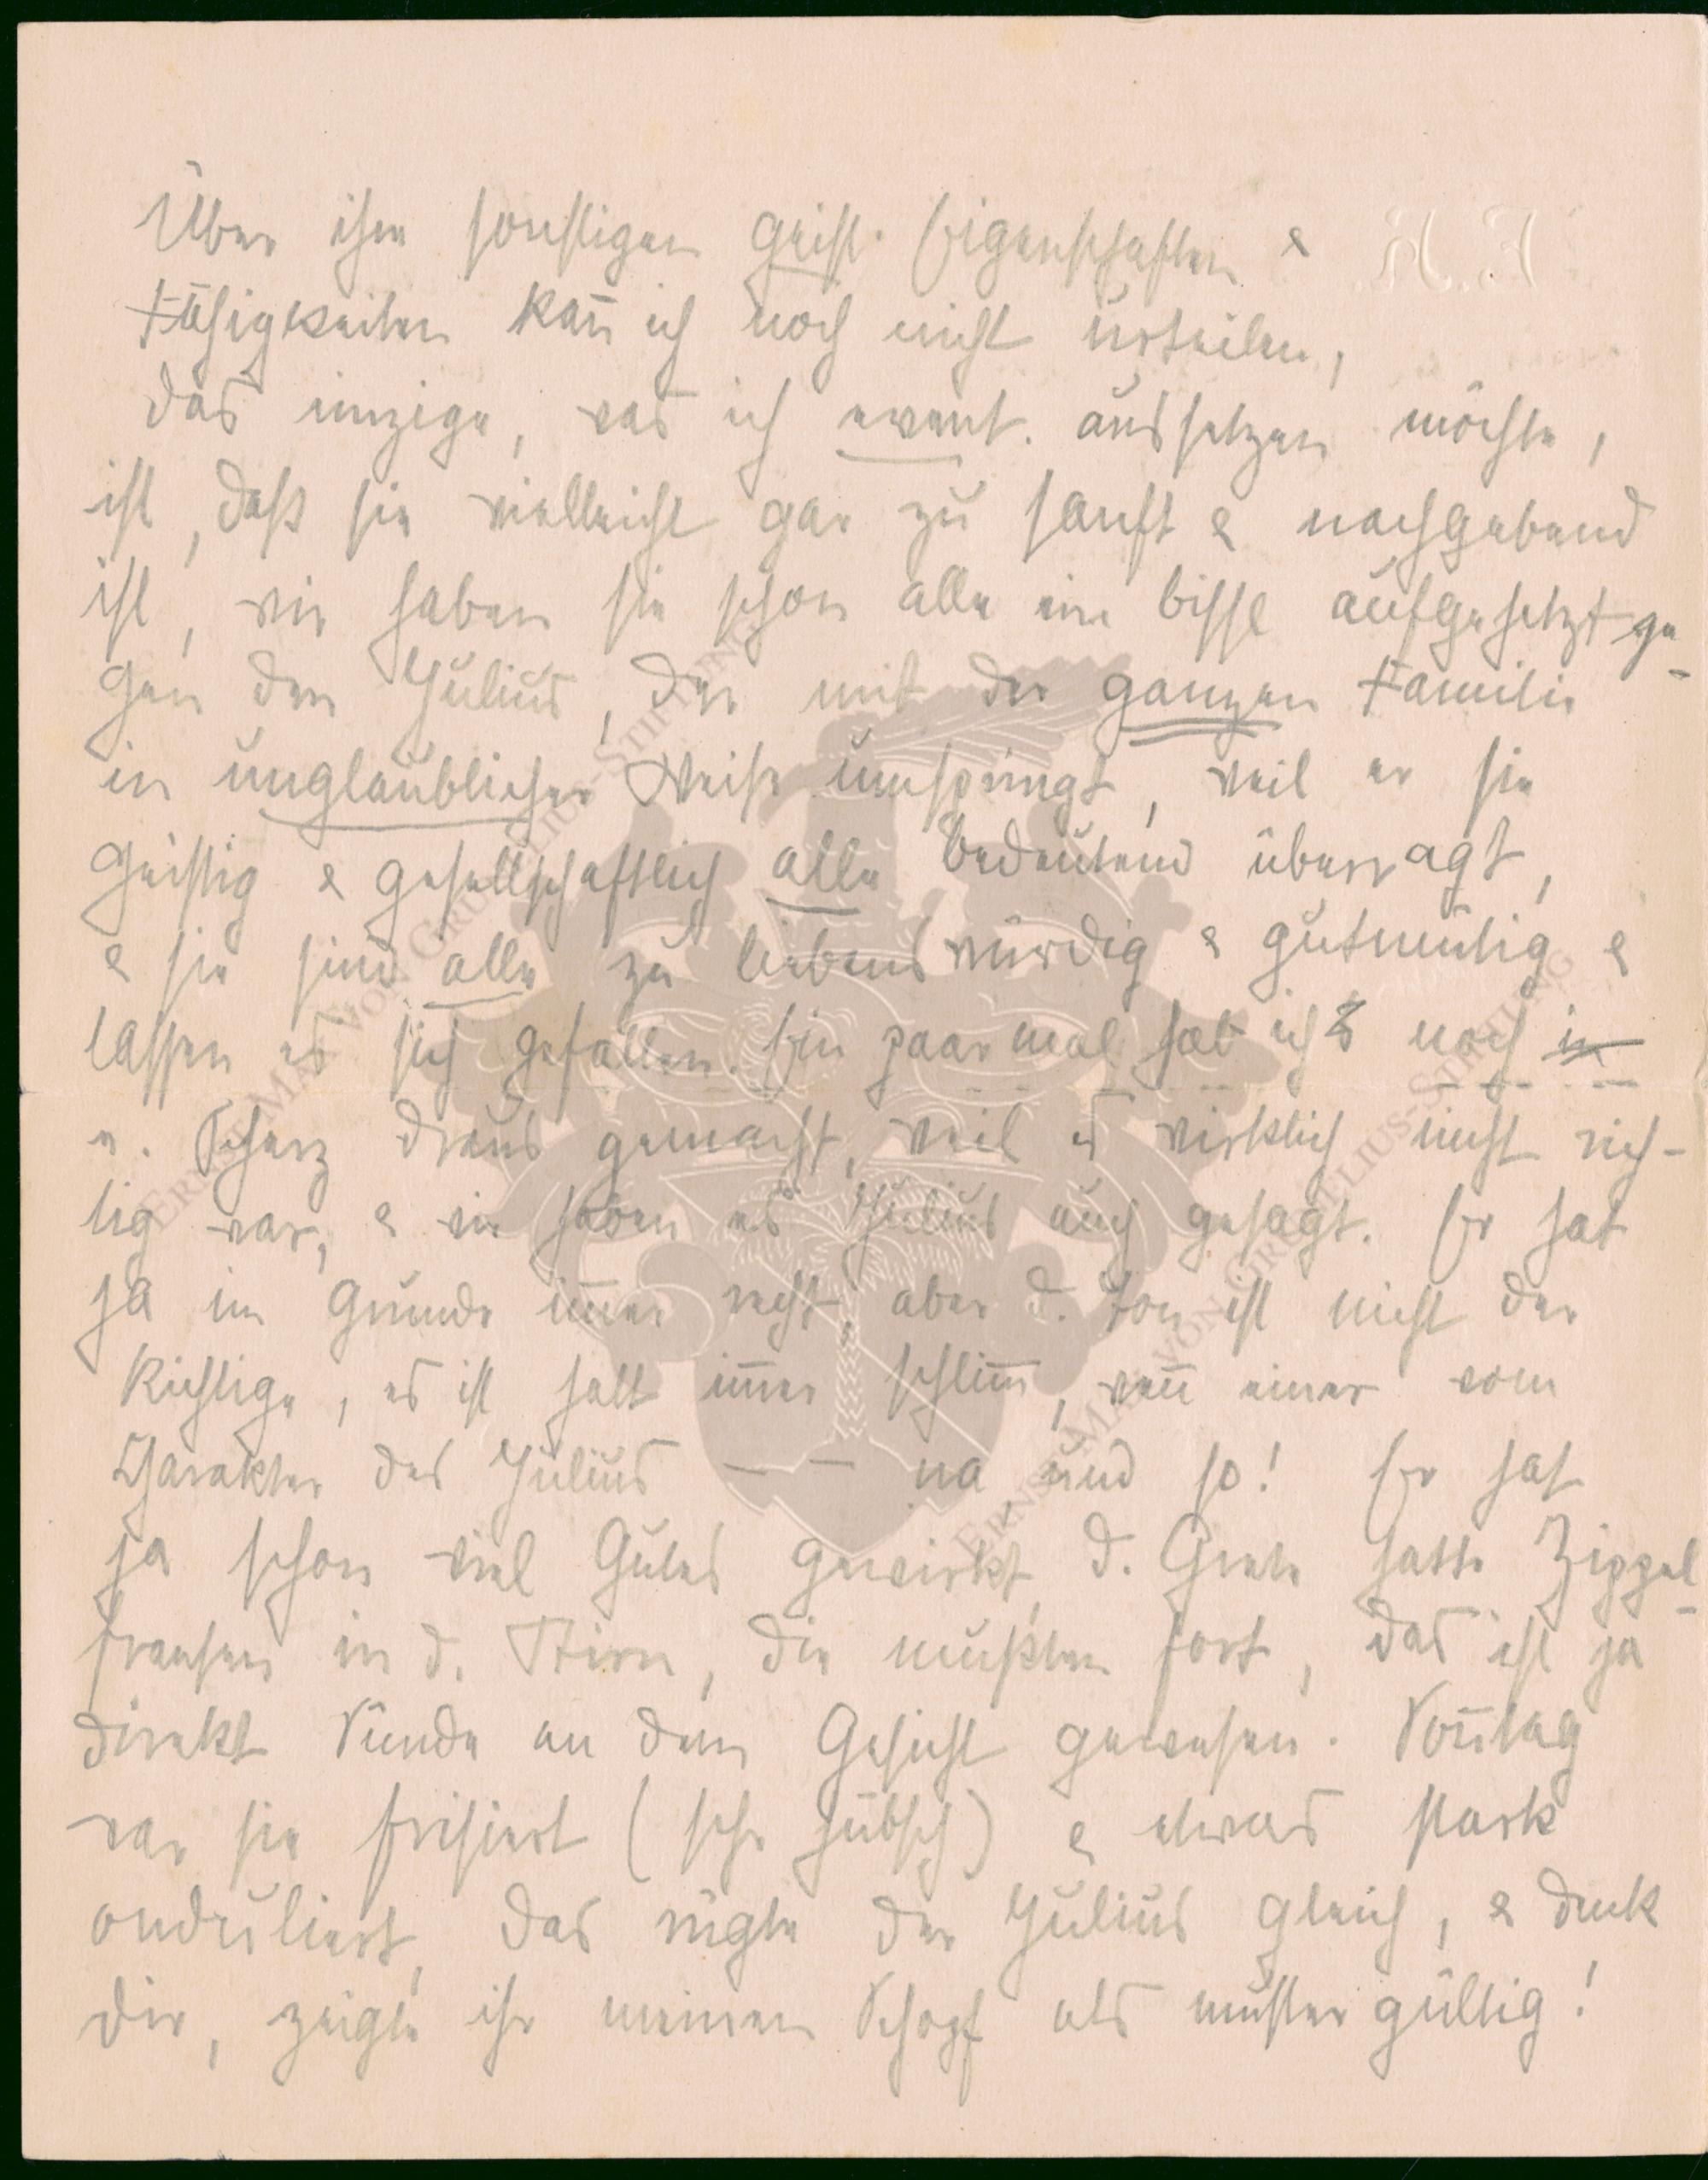 Über ihre sonstigen geist. Eigenschaften &
Fähigkeiten kan̄ ich noch nicht urteilen,
das einzige, was ich event. aussetzen möchte,
ist, daß sie vielleicht gar zu sanft & nachgebend
ist, wir haben sie schon alle ein bissl aufgesetzt ge-
gen den Julius, der mit der ganzen Familie
in unglaublicher Weise umspringt, weil er sie
geistig & gesellschaftlich alle bedeutend überragt,
& sie sind alle zu liebenswürdig & gutmütig &
lassen es sich gefallen. Ein paarmal hab ichs noch in
n. Scherz draus gemacht, weil es wirklich nicht rich-
tig war, & wir haben es Julius auch gesagt. Er hat
ja im Grunde im̄er recht, aber d. Ton ist nicht der
Richtige, es ist halt im̄er schlim̄, wen̄ einer vom
Charakter des Julius — — na, und so! Er hat
ja schon viel Gutes gewirkt, d. Grete hatte Zippel-
fransen in d. Stirn, die mußten fort, das ist ja
direkt Sünde an dem Gesicht gewesen. Son̄tag
war sie frisiert (sehr hübsch) & etwas stark
onduliert, das rügte der Julius gleich, & denk
dir, zeigte ihr meinen Schopf als mustergültig!
ERNST MAX VON GRUNELIUS-STIFTUNG
ERNST MAX VON GRUNELIUS-STIFTUNG